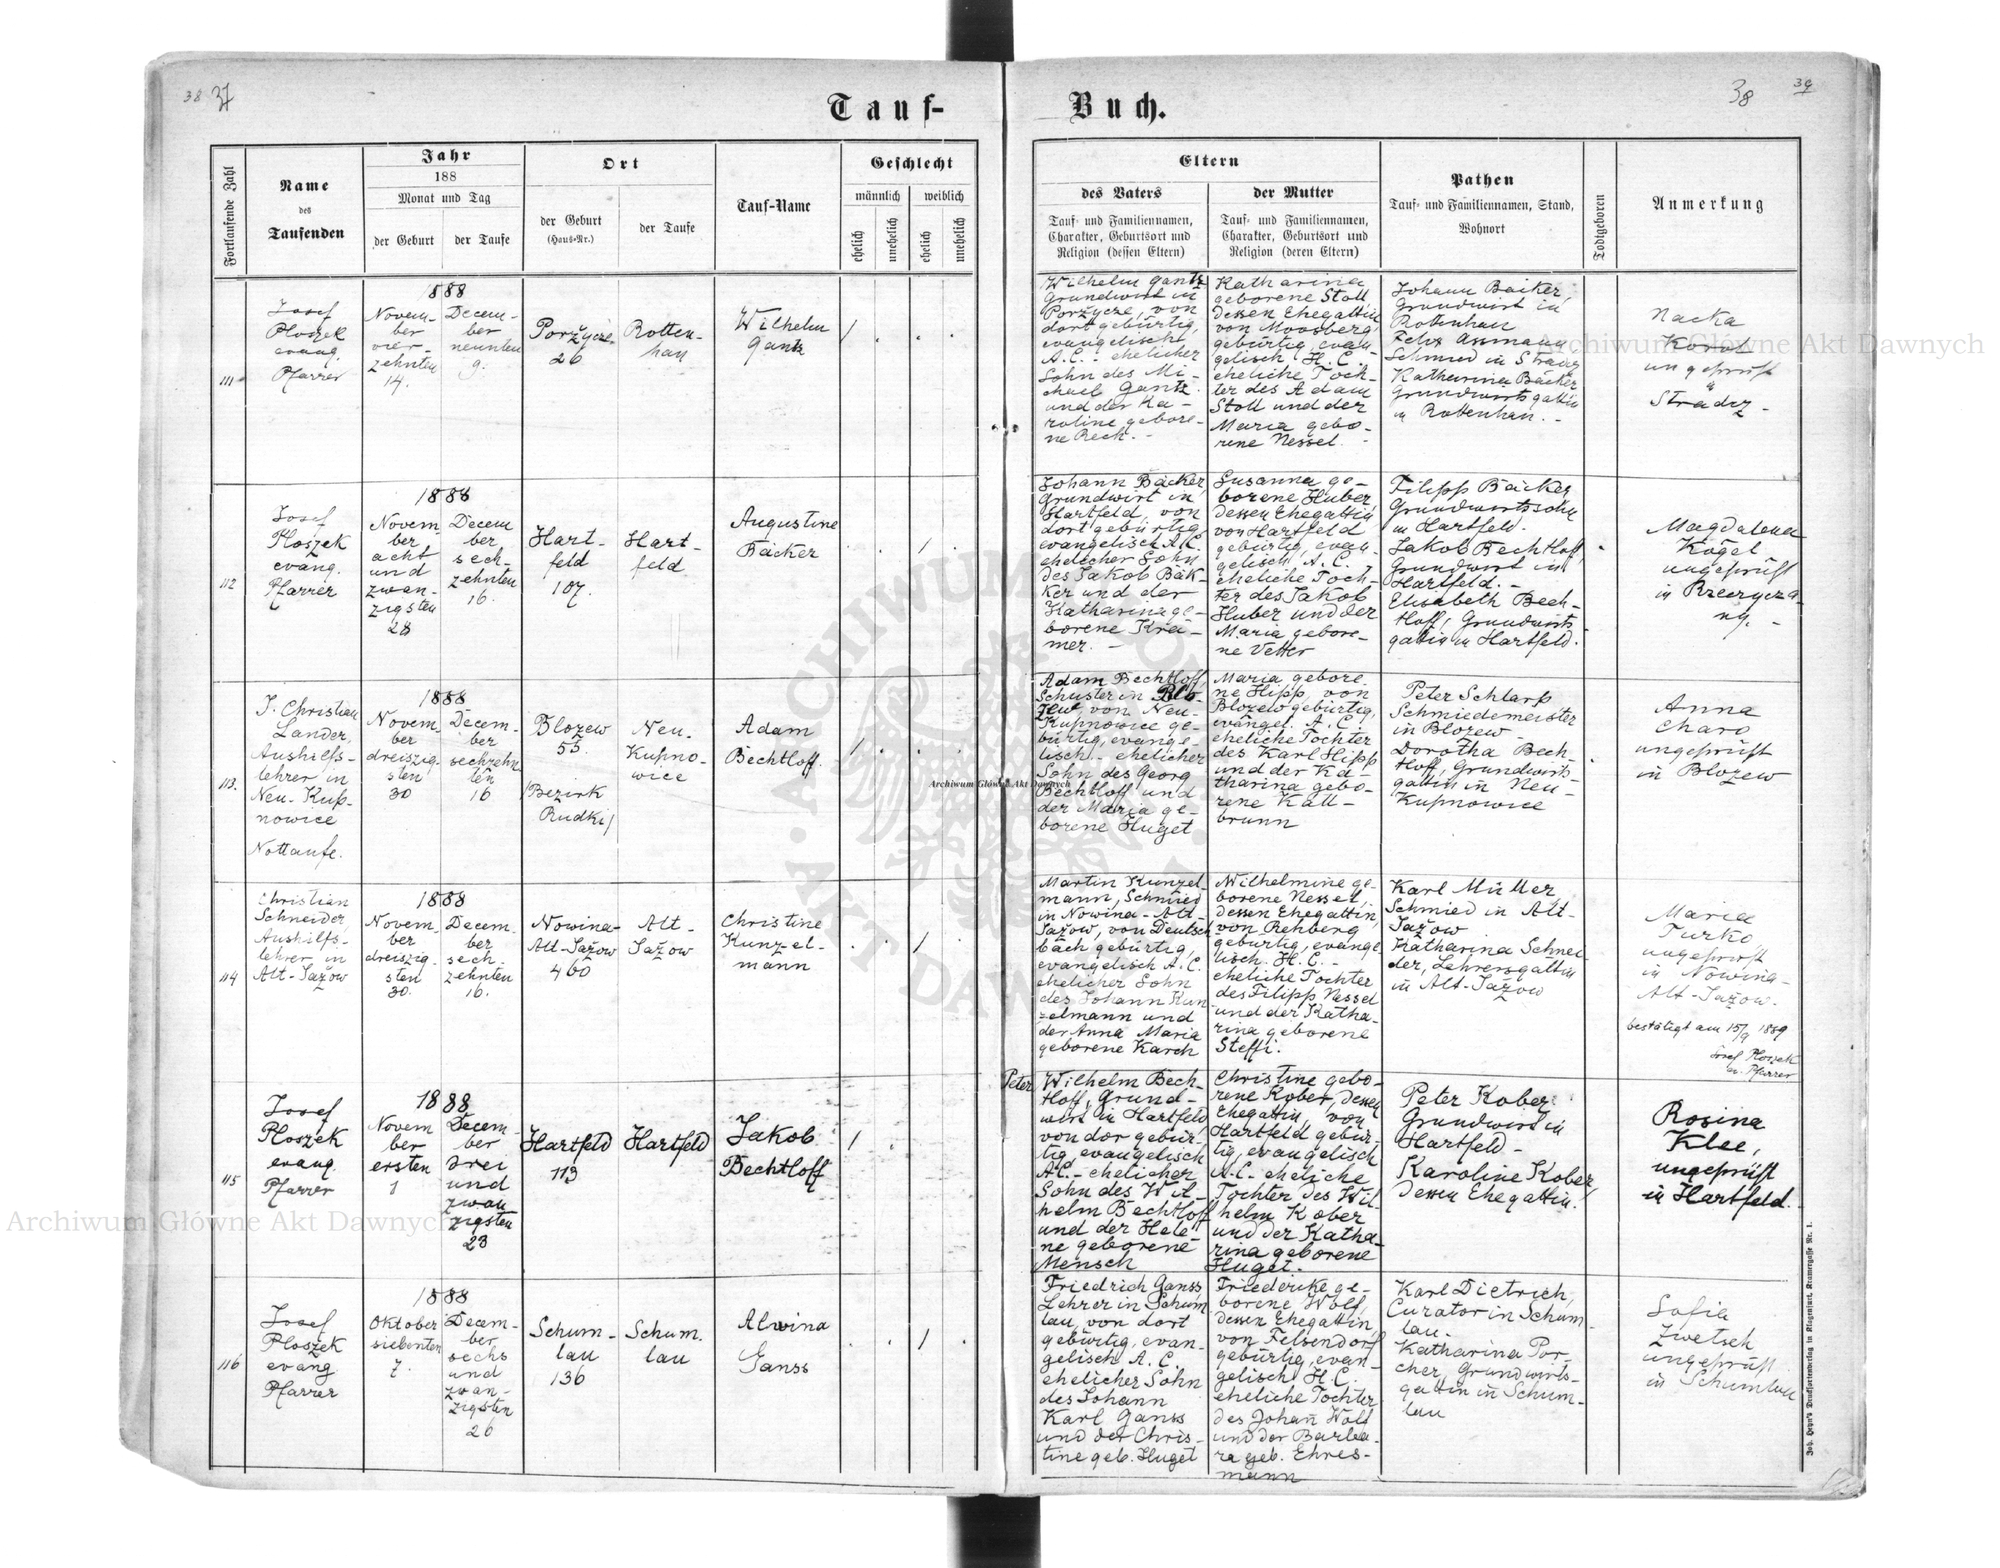 38 37
Tauf-
Buch.
38 39
Fortlaufende Zahl
Name
des
Taufenden
Jahr
188
Monat und Tag
der Geburt
der Taufe
Ort
der Geburt
(Haus-Nr.)
der Taufe
Tauf-Name
Geschlecht
männlich
weiblich
ehelich
unehelich
ehelich
unehelich
Eltern
des Vaters
Tauf- und Familiennamen,
Charakter, Geburtsort und
Religion (dessen Eltern)
der Mutter
Tauf- und Familiennamen,
Charakter, Geburtsort und
Religion (deren Eltern)
Pathen
Tauf- und Familiennamen, Stand,
Wohnort
Todtgeboren
Anmerkung
111
Josef
Ploszek
evang.
Pfarrer
1888
Novem-
ber
vier-
zehnten
14.
Decem-
ber
neunten
9.
Porzycze
26
Rotten-
han
Wilhelm
Gantz
Wilhelm Gantz
Grundwirt in
Porżycze, von
dort gebürtig,
evangelisch
A.C.- ehelicher
Sohn des Mi-
chael Gantz
und der Ka-
roline gebore-
ne Rech. -
Katharina
geborene Stoll,
dessen Ehegattin
von Moosberg
gebürtig, evan-
gelisch H.C.
eheliche Toch-
ter des Adam
Stoll und der
Maria gebo-
rene Nessel. -
Johann Bäcker,
Grundwirt in
Rottenhan
Felix Assmann
Schmied in Stradz
Katharina Bäcker
Grundwirtsgattin
in Rottenhan. -
Nacka
ungeprüft
112
Josef
Ploszek
evang.
Pfarrer
1888
Novem-
ber
acht
und
zwan-
zigsten
28
Decem
ber
sech-
zehnten
16.
Hart-
feld
107.
Hart-
feld
Augustine
Bäcker
Johann Bäcker,
Grundwirt in
Hartfeld, von
dort gebürtig
evangelisch A.C.
ehelicher Sohn
des Jakob Bäk-
ker und der
Katharina ge-
borene Krä-
mer. -
Susanna ge-
borene Huber,
dessen Ehegattin
von Hartfeld
gebürtig, evan-
gelisch, A.C.
eheliche Toch-
ter des Jakob
Huber und der
Maria gebore-
ne Vetter
Filipp Bäcker,
Grundwirtssohn
in Hartfeld.
Jakob Bechtloff,
Grundwirt in
Hartfeld. -
Elisabeth Bech-
tloff, Grundwirts-
gattin in Hartfeld.
Magdalena
Kögel
ungeprüft
113.
J. Christian
Lander,
Aushilfs-
lehrer in
Neu-Kup-
nowice
Nottaufe.
1888
Novem-
ber
dreiszig-
sten
30
Decem-
ber
sechzehn-
ten
16
Blozew
55.
(Bezirk
Rudki)
Neu-
Kupno-
wice
Adam
Bechtloff
Adam Bechtloff,
Schuster in Blo-
zew von Neu-
Kupnowice ge-
bürtig, evange-
lisch - ehelicher
Sohn des Georg
Bechtloff und
der Maria ge-
borene Huget
Maria gebore-
ne Hipp, von
Blozew gebürtig,
evangel. A.C.
eheliche Tochter
des Karl Hipp
und der Ka-
tharina gebo-
rene Kall-
brunn
Peter Schlarp
Schmiedemeister
in Blozew
Dorotha Bech-
tloff, Grundwirts-
gattin in Neu-
Kupnowice
Anna
Charo
ungeprüft
in Blozew
114
Christian
Schneider,
Aushilfs-
lehrer in
Alt-Jażow
1888
Novem-
ber
dreiszig-
sten
30.
Decem-
ber
sech-
zehnten
16.
Nowina-
Alt-Jażow
460
Alt-
Jażow
Christine
Kunzel-
mann
Martin Kunzel-
mann, Schmied
in Nowina-Alt-
Jażow, von Deutsch
bach gebürtig,
evangelisch A.C.
ehelicher Sohn
des Johann Kun
zelmann und
der Anna Maria
geborene Karch
Wilhelmine ge-
borene Nessel,
dessen Ehegattin
von Rehberg
gebürtig, evange
lisch. H.C. -
eheliche Tochter
des Filipp Nessel
und der Katha-
rina geborene
Steffi.
Karl Müller,
Schmied in Alt-
Jażow
Katharina Schnei-
der, Lehrersgattin
in Alt-Jażow
Maria
Turko,
ungeprüft
in Nowina-
Alt-Jażow.
bestätigt am 15/9 1889
Josef Ploszek
ev. Pfarrer
115
Josef
Ploszek
evang.
Pfarrer
1888
Novem
ber
ersten
1
Decem-
ber
drei
und
zwan-
zigsten
23
Hartfeld
113
Hartfeld
Jakob
Bechtloff
Peter
Wilhelm Bech-
tloff, Grund-
wirt in Hartfeld,
von dor gebür-
tig, evangelisch
A.C.- ehelicher
Sohn des Wil-
helm Bechtloff
und der Hele-
ne geborene
Mensch
Christine gebo-
rene Kober, dessen
Ehegattin, von
Hartfeld gebür-
tig, evangelisch
A.C. eheliche
Tochter des Wil-
helm Kober
und der Katha-
rina geborene
Huget.
Peter Kober
Grundwirt in
Hartfeld-
Karoline Kober
dessen Ehegattin.
Rosina
Klee,
ungeprüft
in Hartfeld.
116
Josef
Ploszek
evang
Pfarrer
1888
Oktober
siebenten
7.
Decem-
ber
sechs
und
zwan-
zigsten
26
Schum-
lau
136
Schum-
lau
Alwina
Ganss
Friedrich Ganss
Lehrer in Schum
lau, von dort
gebürtig, evan-
gelisch A.C.
ehelicher Sohn
des Johann
Karl Ganss
und der Chris-
tine geb. Huget
Friederike ge-
borene Wolf,
dessen Ehegattin
von Felsendorf
gebürtig, evan-
gelisch H.C.
eheliche Tochter
des Johan Wolf
und der Barba-
ra geb. Ehres-
mann
Karl Dietrich,
Curator in Schum-
lau.
Katharina Por-
cher, Grundwirts-
gattin in Schum-
lau
Sofia
Zwetsch
ungeprüft
in Schumlau
Joh. Heyn's Drucksortenverlag in Klagenfurt, Kramergasse Nr. 1.
Archiwum Główne Akt Dawnych
Archiwum Główne Akt Dawnych
Archiwum Główne Akt Dawnych
ARCHIWUM GŁÓWNE AKT DAWNYCH